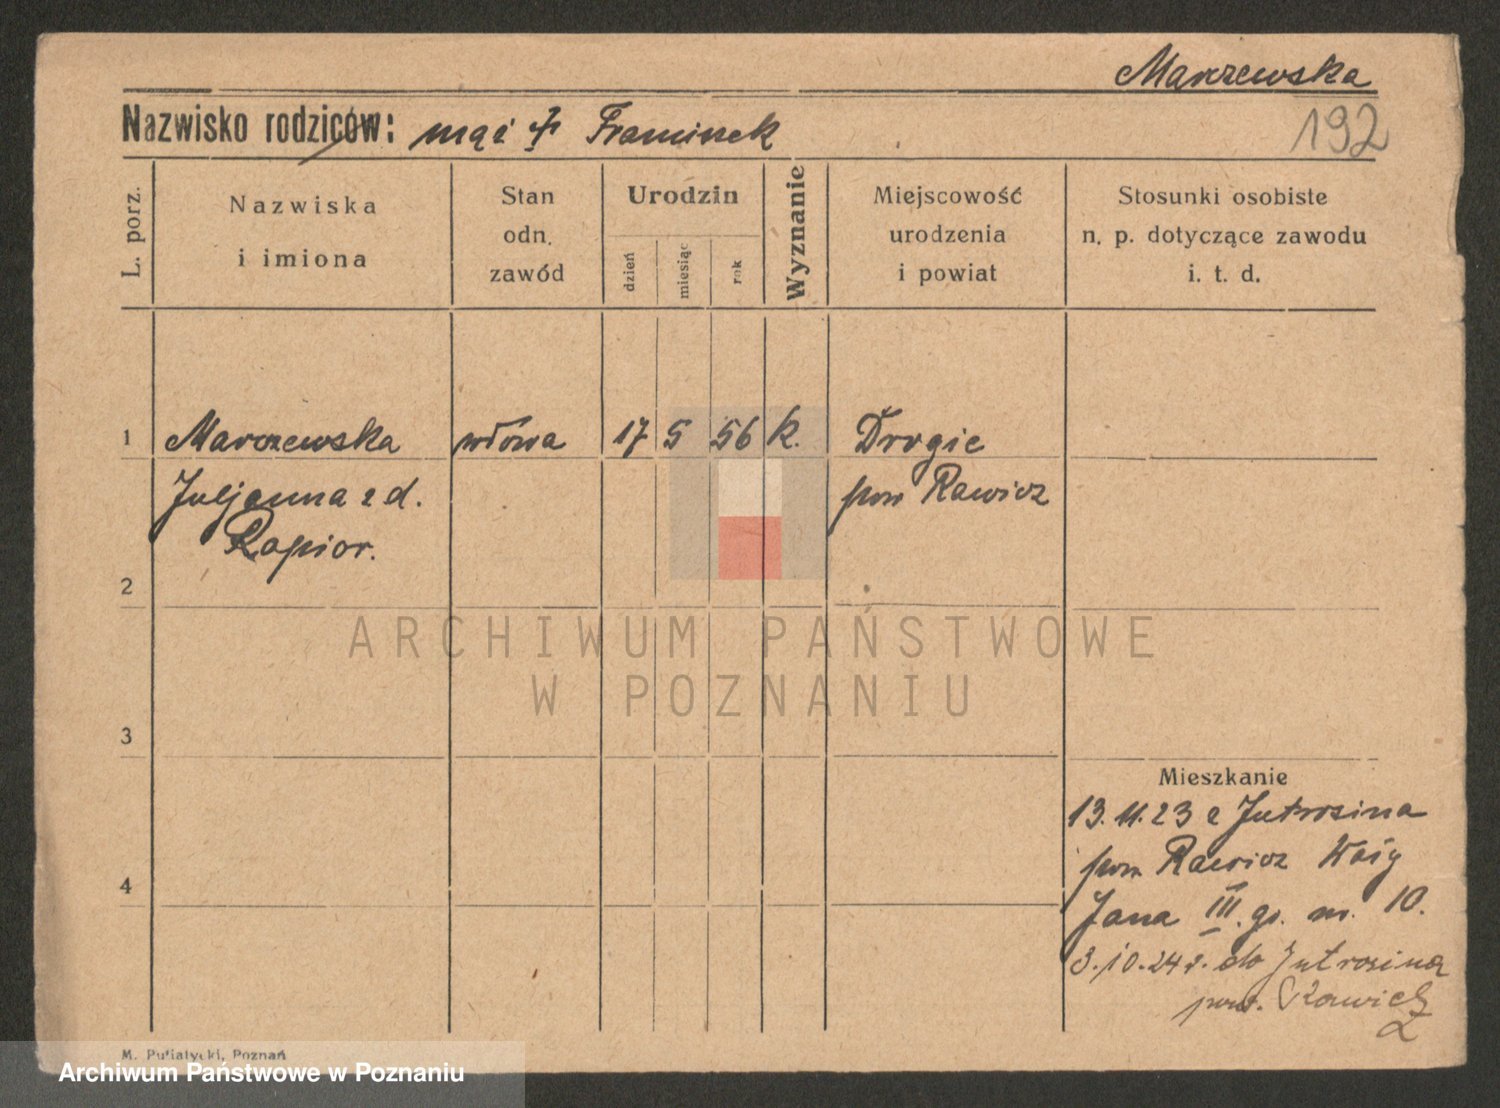 Marczewska
Nazwisko rodziców: mąż † Franciszek
192
L. porz.
Nazwiska
i imiona
Stan
odn.
zawód
Urodzin
dzień
miesiąc
rok
Wyznanie
Miejscowość
urodzenia
i powiat
Stosunki osobiste
n. p. dotyczące zawodu
i. t. d.
1 Marczewska wdowa 17 5 56 k. Drogie
Juljanna z d. pow Rawicz
Rapior.
2
ARCHIWUM PAŃSTWOWE
W POZNANIU
3
Mieszkanie
13.11.23 z Jutrosina
pow Rawicz
4
Jana III. go. nr. 10.
3.10.24 r. do Jutrosina
pow. Rawicz
M. Putiatycki, Poznań
Archiwum Państwowe w Poznaniu